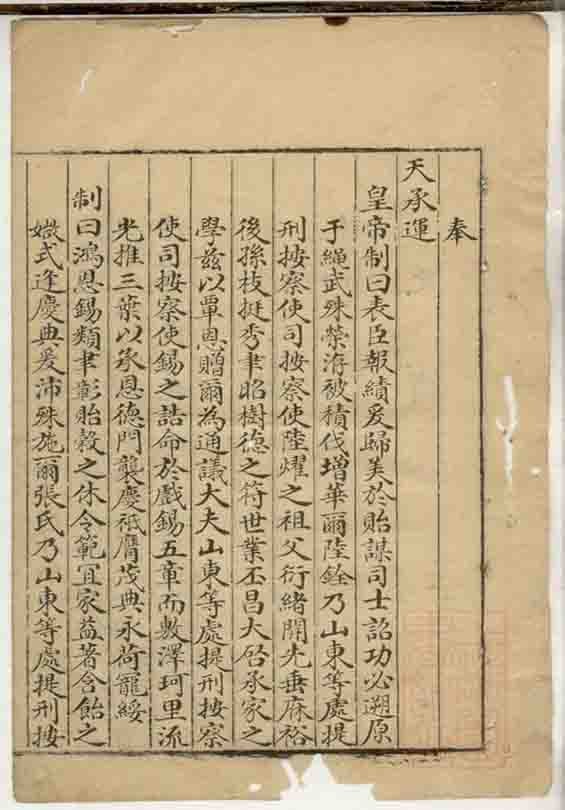 奉
天承運
皇帝制曰表臣報績爰歸美於貽謀司士詔功必遡原
于繩武殊榮洊被積伐增華爾陸銓乃山東等處提
刑按察使司按察使陸燿之祖父衍緒開先垂庥裕
後孫枝挺秀聿昭樹德之符世業丕昌大啟承家之
學兹以覃恩贈爾為通議大夫山東等處提刑按察
使司按察使錫之誥命於戲錫五章而敷澤珂里流
光推三葉以承恩德門襲慶祗膺茂典永荷寵綏
制曰鴻恩錫類聿彰貽穀之休令範宜家益著含飴之
媺式逢慶典爰沛殊施爾張氏乃山東等處提刑按